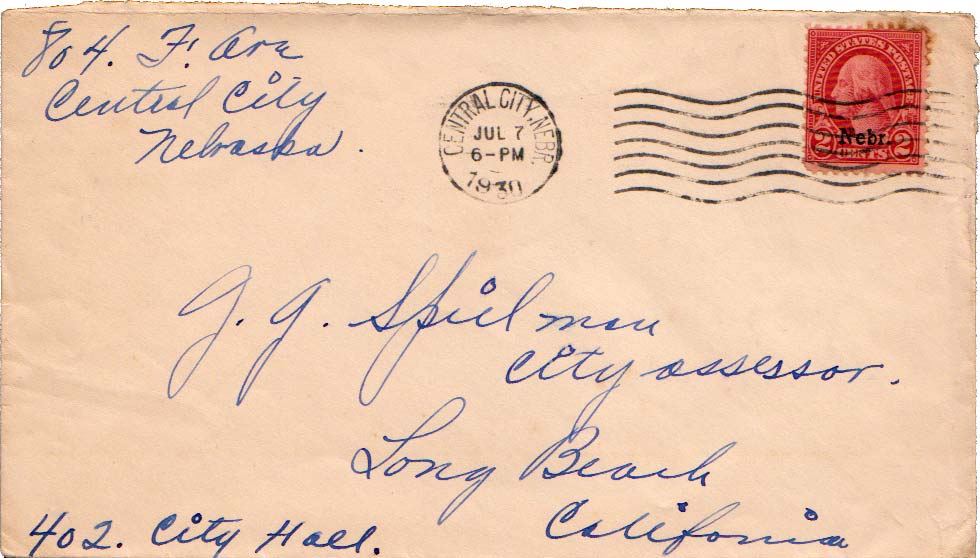 804. F. Ave
Central City
Nebraska.
CENTRAL CITY, NEBR.
JUL 7
6-PM
1930
UNITED STATES POSTAGE
Nebr.
2 CENTS 2
J. J. Spielman
City assessor.
Long Beach
California
402. City Hall.